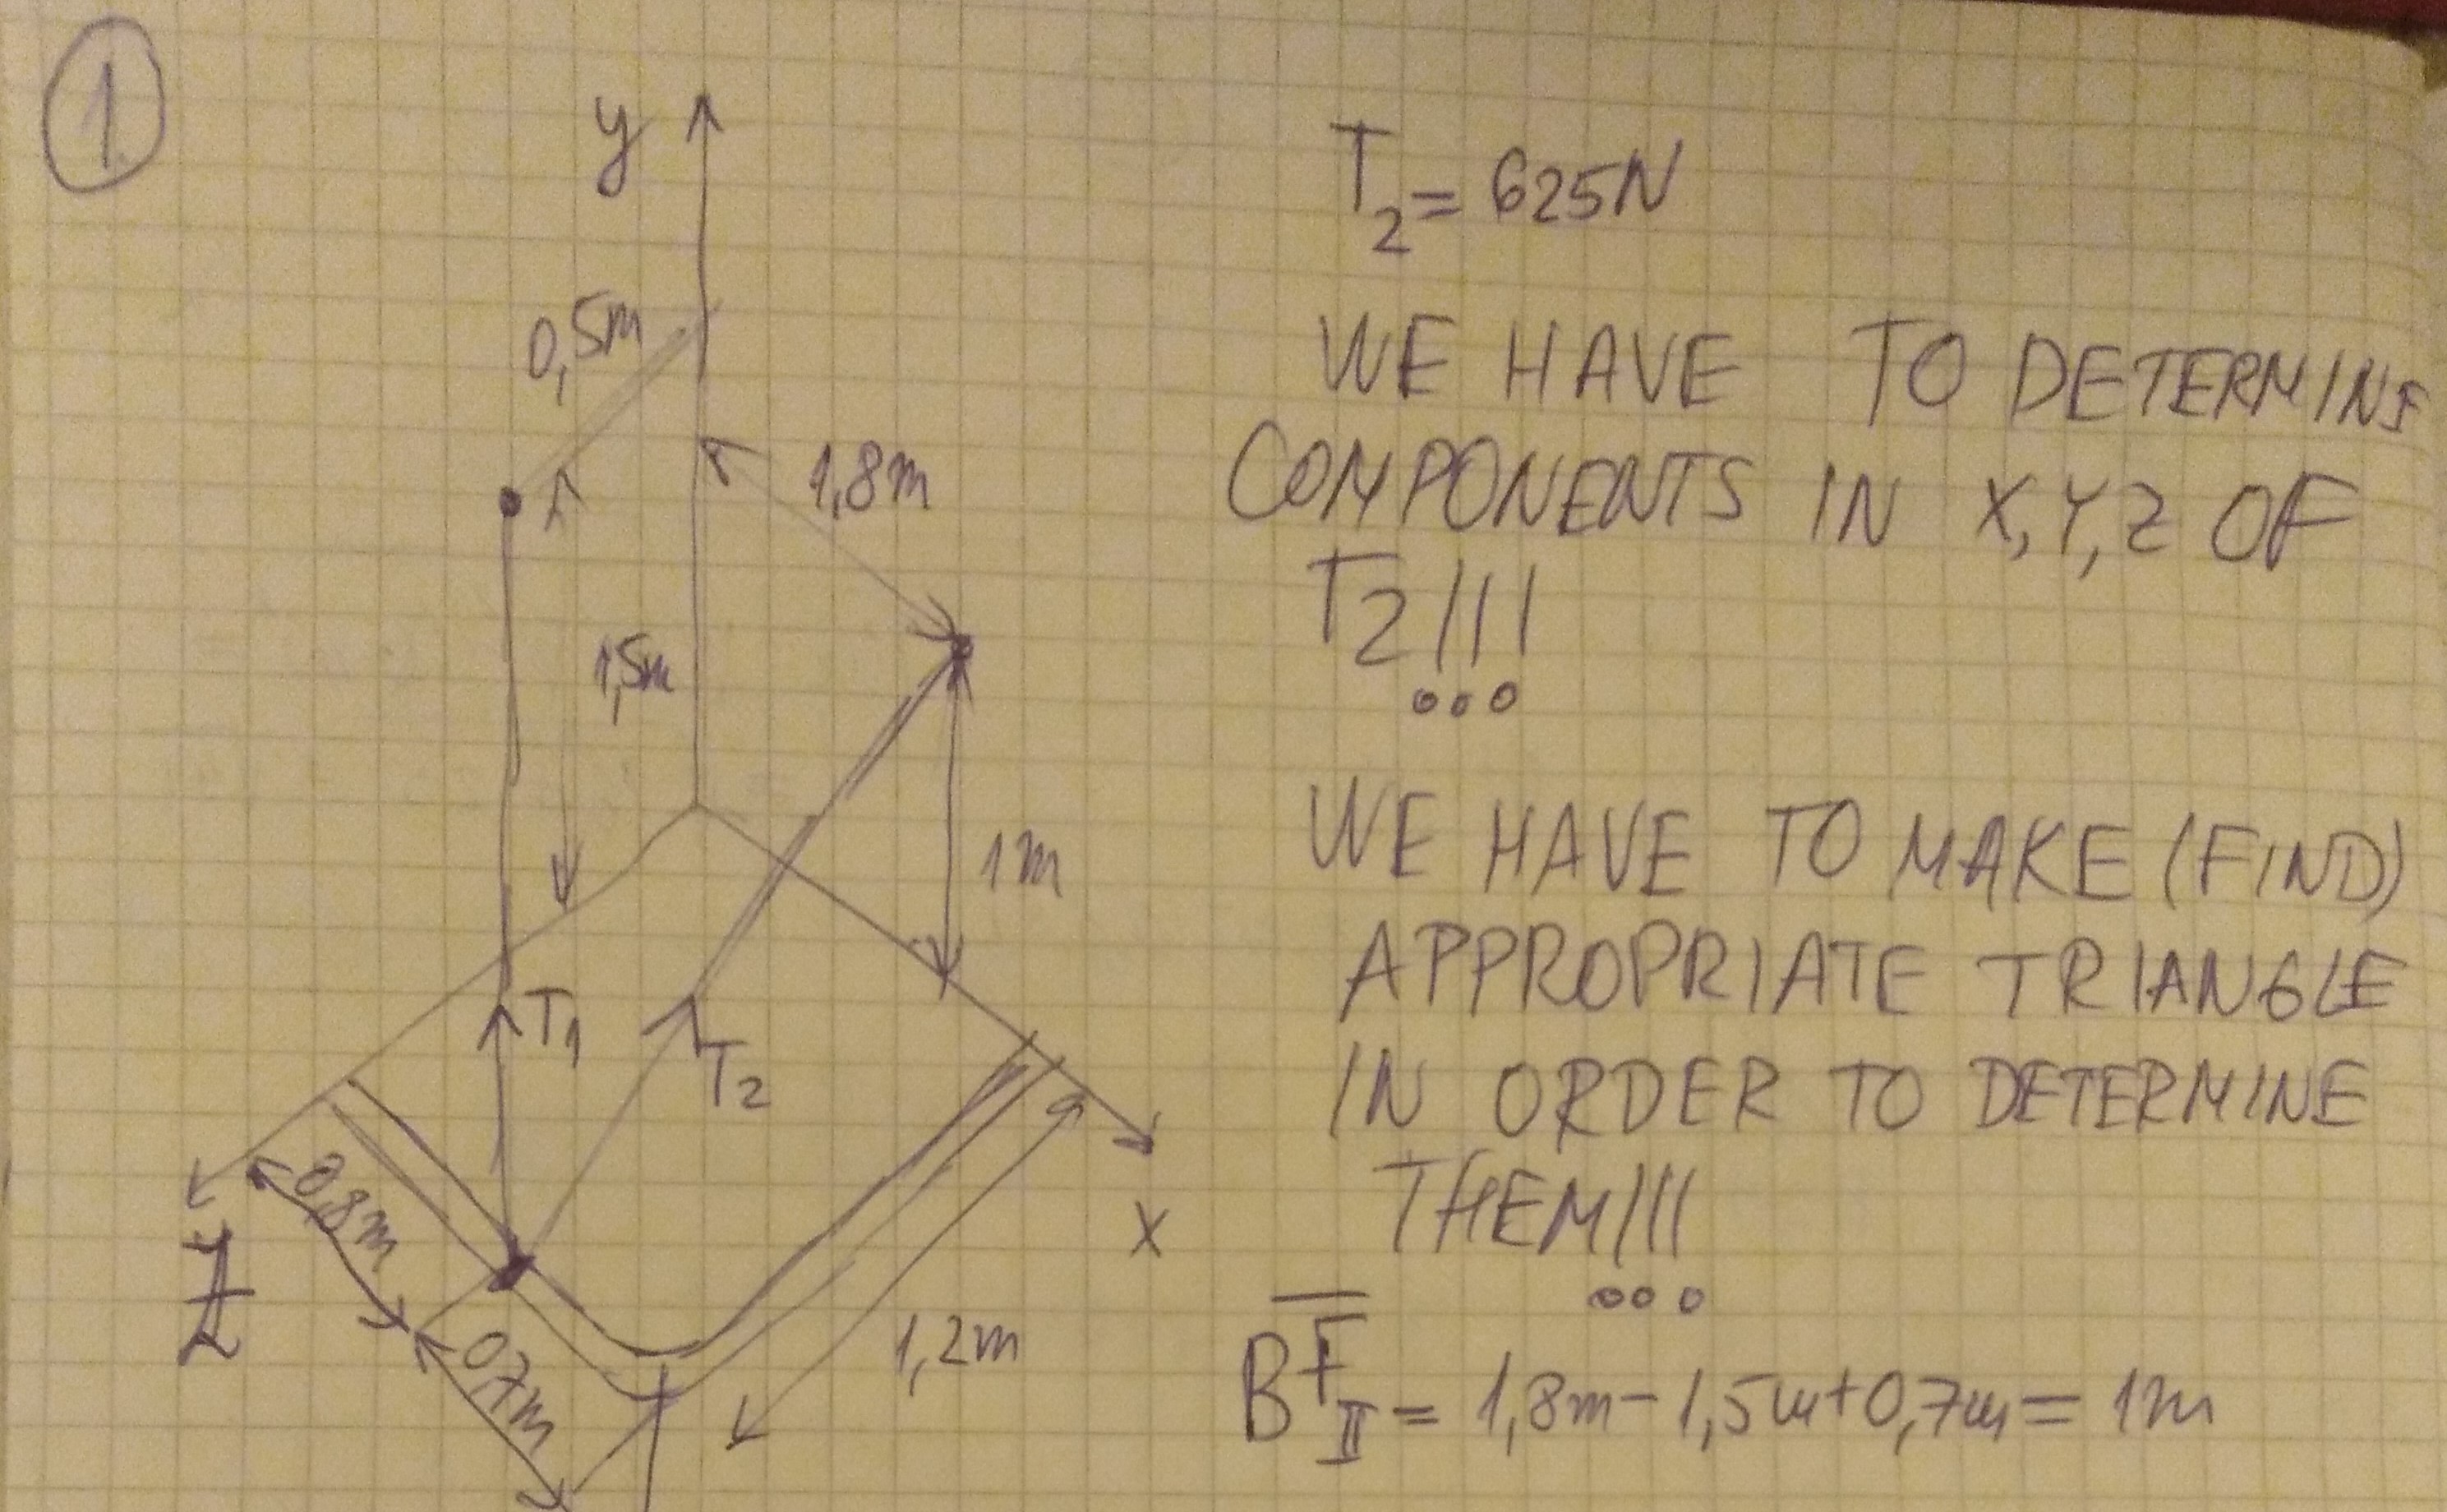 1
y
0,5m
1,8m
1,5m
1m
T1
T2
0,8m
0,7m
1,2m
Z
X
T2 = 625N
WE HAVE TO DETERMINE
COMPONENTS IN X,Y,Z OF
T2!!!
WE HAVE TO MAKE (FIND)
APPROPRIATE TRIANGLE
IN ORDER TO DETERMINE
THEM!!!
= 1,8m - 1,5m + 0,7m = 1m